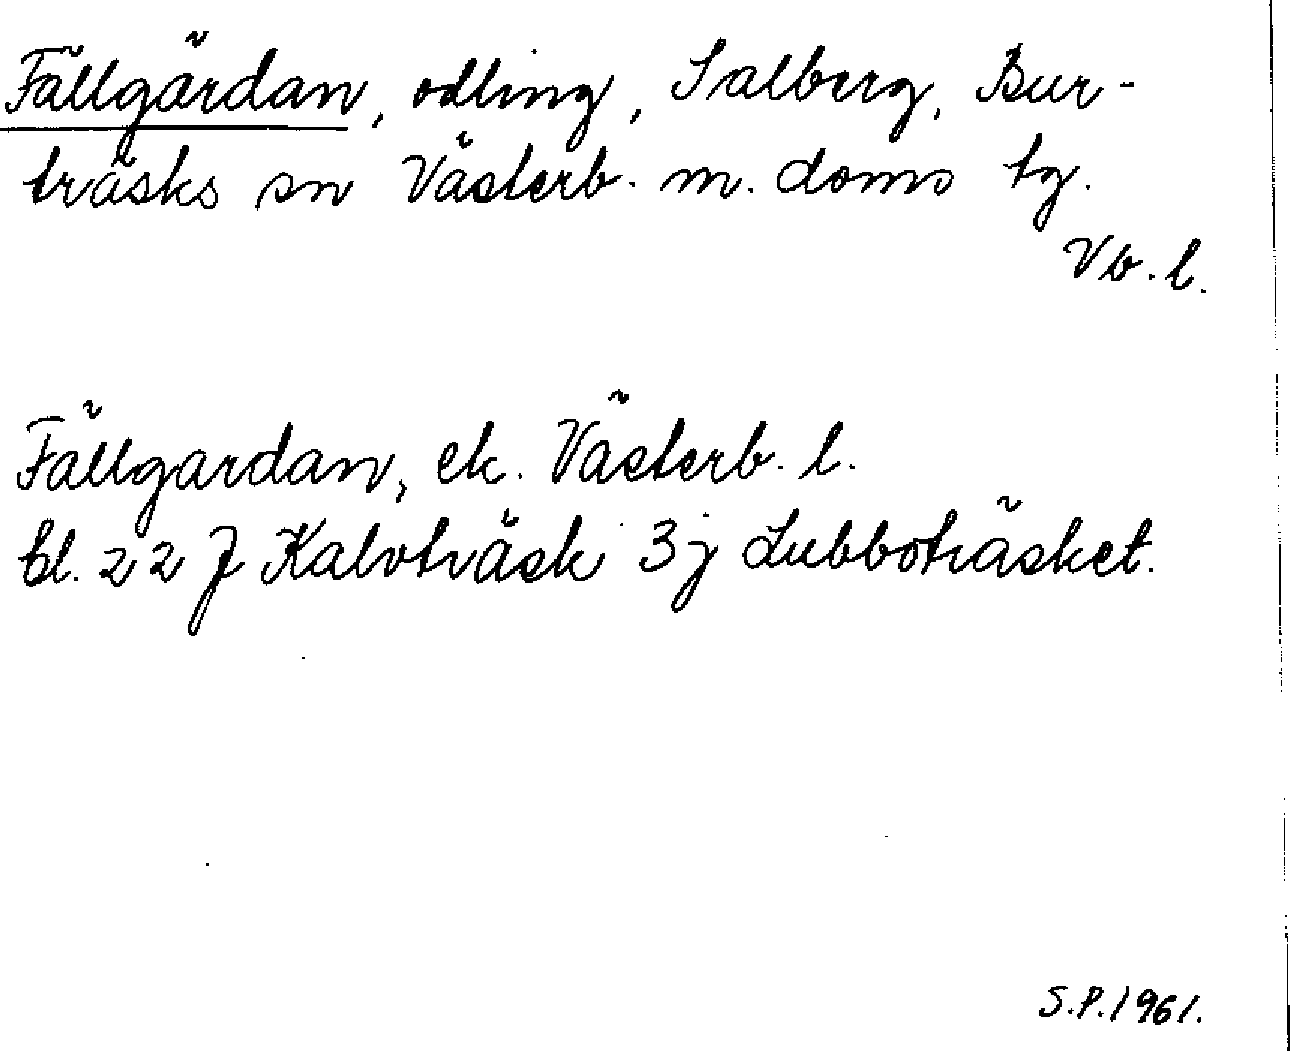 Fällgärdan, odling, Salberg, Bur-
träsks sn Västerb. m. doms tg.
Vb. l.
Fällgardan, ek. Västerb. l.
bl. 22 J Kalvträsk 3j Lubboträsket.
S.P. 1961.